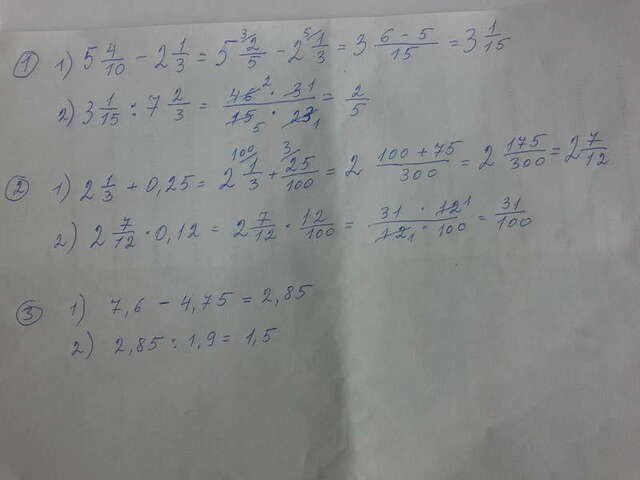 ① 1) 5 4/10 - 2 1/3 = 5 2/5 - 2 1/3 = 3 (6 - 5)/15 = 3 1/15
2) 3 1/15 : 7 2/3 = (46 · 31)/(15 · 23) = 2/5
② 1) 2 1/3 + 0,25 = 2 1/3 + 25/100 = 2 (100 + 75)/300 = 2 175/300 = 2 7/12
2) 2 7/12 · 0,12 = 2 7/12 · 12/100 = (31 · 12)/(12 · 100) = 31/100
③ 1) 7,6 - 4,75 = 2,85
2) 2,85 : 1,9 = 1,5